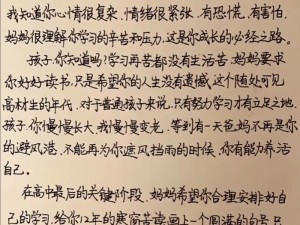 我知道你心情很复杂,情绪很紧张,有恐慌,有害怕,
妈妈很理解你学习的辛苦和压力,这是你成长的必经之路。
孩子,你知道吗?学习再苦都没有生活苦,妈妈要求
你好好读书,只是希望你的人生没有遗憾,这个随处可见
高材生的年代,对于普通孩子来说,只有努力学习才有立足之地,
孩子,你慢慢长大,我慢慢变老,等到有一天爸妈不再是你
的避风港,不能再为你遮风挡雨的时候,你有能力养活
自己。
在高中最后的关键阶段,妈妈希望你合理安排好自
己的学习,给你12年的寒窗苦读画上一个圆满的句号,只